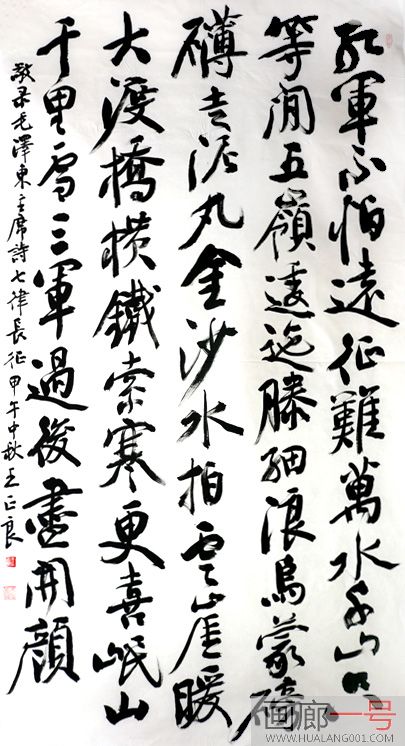 紅軍不怕遠征難萬水千山只
等閒五嶺逶迤騰細浪烏蒙磅
礴走泥丸金沙水拍雲崖暖
大渡橋橫鐵索寒更喜岷山
千里雪三軍過後盡開顏
敬录毛澤東主席詩七律長征甲午中秋王正良
画廊一号
WWW.HUALANG001.COM